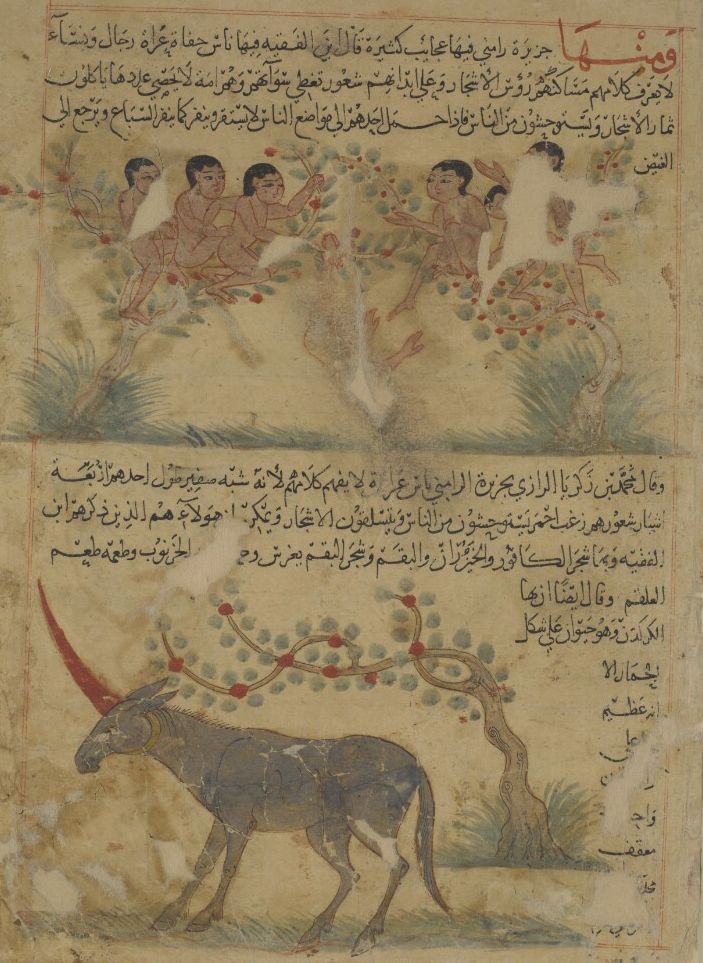 ومنها جزيرة رامني فيها عجائب كثيرة قال ابن الفقيه فيها ناس حفاة عراة رجال ونساء
لا يعرف كلامهم مساكنهم رؤس الاشجار وعلى ابدانهم شعور تغطي سوآتهم وهم امة لا يحصى عددها ياكلون
ثمار الاشجار ويستوحشون من الناس فاذا حمل احدهم الى مواضع الناس لا يستقر وينفر كما ينفر السباع ويرجع الى
الغيض
وقال محمد بن زكريا الرازي بجزيرة الرامني ناس عراة لا يفهم كلامهم لانه شبه صفير طول احدهم اربعة
اشبار شعورهم زغب احمر يستوحشون من الناس ويتسلقون الاشجار ويمكن ان هولاء هم الذين ذكرهم ابن
الفقيه وبها شجر الكافور والخيزران والبقم وشجر البقم يغرس الخرنوب وطعمه طعم
العلقم وقال ايضا ان بها
الكركدن وهو حيوان على شكل
الحمار الا
انه عظيم
معقف